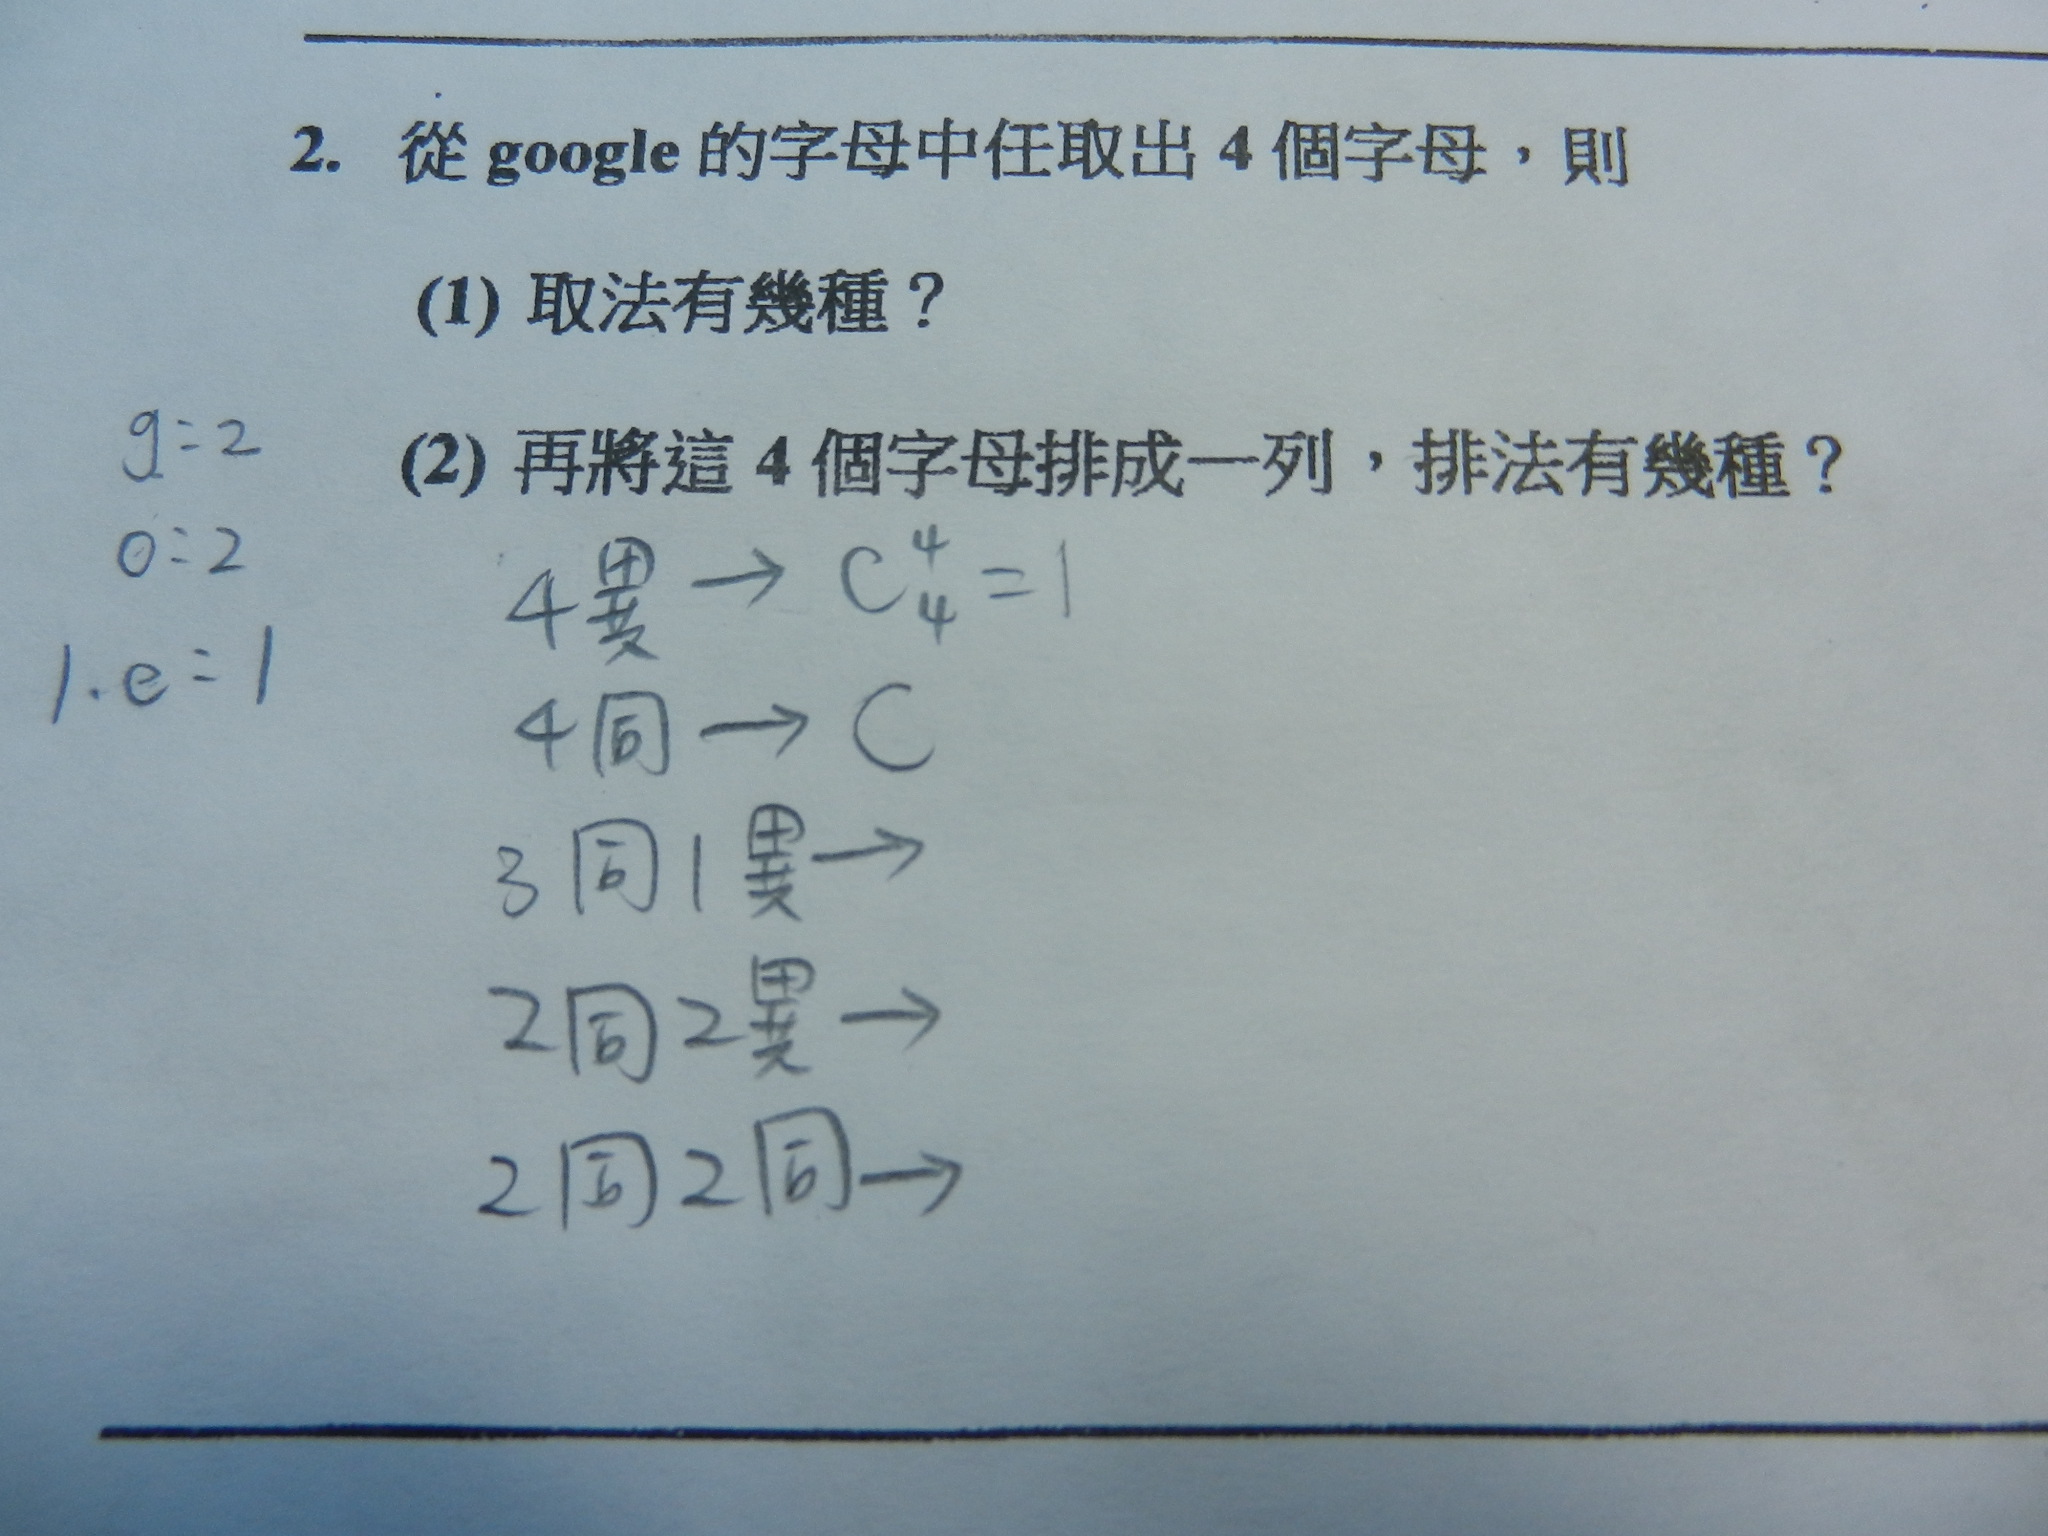 2. 從 google 的字母中任取出 4 個字母，則
(1) 取法有幾種？
(2) 再將這 4 個字母排成一列，排法有幾種？
g=2
o=2
l.e=1
4異→C⁴₄=1
4同→C
3同1異→
2同2異→
2同2同→